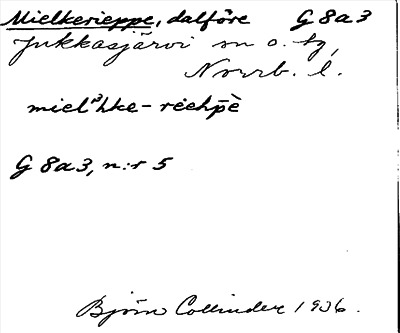 Mielkerieppe, dalföre G 8a3
Jukkasjärvi sn o. tg,
Norrb. l.
mielᵊhke-rėėhpė̄
G 8a3, n:r 5
Björn Collinder 1936.